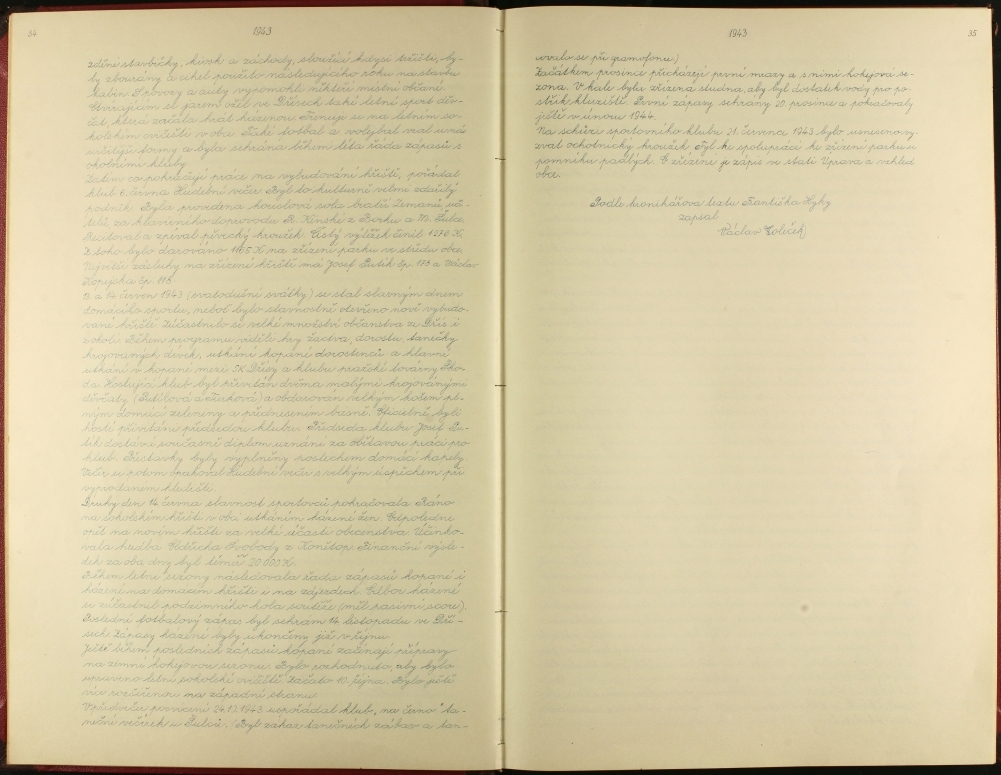 34
1943
zděné stavbičky, kiosk a záchody, sloužící kdysi tržišti, by-
ly zbourány a cihel použito následujícího roku na stavbu
kabin. S povozy a auty vypomohli někteří místní občané.
S jarem ožil ve Dřísech také letní sport děv-
čat, která začala hrát házenou. Trénuje se na letním so-
kolském cvičišti v obci. Také fotbal a volejbal vzal na se
určitější formy a byla sehrána během léta řada zápasů s
okolními kluby.
Zatím co pokračují práce na vybudování hřiště, pořádal
klub 6. června Hudební večer. Byl to kulturně velmi zdařilý
podnik. Byla provedena houslová sola bratří Zemanů, uči-
telů, za klavírního doprovodu R. Kinské z Borku a M. Šulce.
Recitoval a zpíval pěvecký kroužek. Čistý výtěžek činil 1570 K.
Z toho bylo darováno K na zřízení parku ve středu obce.
Největší zásluhy na zřízení hřiště měl Josef Šutik čp. 173 a Václav
Kopejska čp. 115.
13. a 14. červen 1943 (svatodušní svátky) se stal slavným dnem
domácího sportu, neboť bylo slavnostně otevřeno nově vybudo-
vané hřiště. Zúčastnilo se velké množství občanstva ze Dřís i
z okolí. Během programu viděli hry žactva, dorostu, tanečky
krojovaných dívek, utkání kopané dorostenců a hlavní
utkání v kopané mezi SK Dřísy a klubu pražské továrny Ško-
da. Hostující klub byl přivítán dvěma malými krojovanými
děvčátky a obdarován velkým košem pl-
ným domácí zeleniny a přednesením básně. Oficielně byli
hosté přivítáni předsedou klubu. Předseda klubu Josef Šu-
tik dostává současně diplom uznání za obětavou práci pro
klub. Přestávky byly vyplněny poslechem domácí kapely.
Večer se potom opakoval Hudební večer s velkým úspěchem při
vyprodaném hledišti.
Druhý den 14. června slavnost sportovců pokračovala. Ráno
na sokolském hřišti v obci utkáním házené žen. Odpoledne
opět na novém hřišti za velké účasti obecenstva. Účinko-
vala hudba Oldřicha Svobody z Konětop. Finanční výsle-
dek za oba dny byl téměř 20 000 K.
Během letní sezony následovala řada zápasů kopané i
házené na domácím hřišti i na zájezdech. Odbor házené
se zúčastnil podzimního kola soutěže (měl pasivní score).
Poslední fotbalový zápas byl sehrán 14. listopadu ve Dří-
sech. Zápasy házené byly ukončeny již v říjnu.
Ještě během posledních zápasů kopané začínají přípravy
na zimní hokejovou sezonu. Bylo rozhodnuto, aby bylo
upraveno letní sokolské cvičiště. Začato 10. října. Bylo ještě
více rozšířeno na západní stranu.
V předvečer posvícení 24.12.1943 uspořádal klub „na černo" ta-
neční večírek u Šulců. (Byl zákaz tanečních zábav a tan-
1943
35
covalo se při gramofonu.)
Začátkem prosince přicházejí první mrazy a s nimi hokejová se-
zona. V kale byla zřízena studna, aby byl dostatek vody pro po-
střik kluziště. První zápasy sehrány 20. prosince a pokračovaly
ještě v únoru 1944.
Na schůzi sportovního klubu 21. června 1943 bylo usneseno vy-
zvat ochotnický kroužek Tyl ke spolupráci ke zřízení parku u
pomníku padlých. O zřízení je zápis ve stati Úprava a vzhled
obce.
Podle kronikářova textu Františka Hyky
zapsal
Václav Holeček